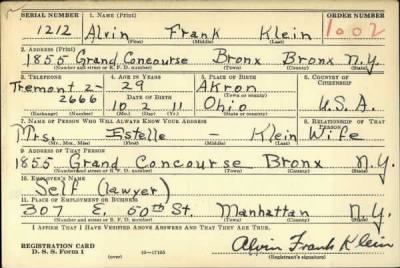 SERIAL NUMBER 1. NAME (Print) ORDER NUMBER
1212 Alvin Frank Klein 1002
(First) (Middle) (Last)
2. ADDRESS (Print)
1855 Grand Concourse Bronx Bronx N.Y.
(Number and street or R. F. D. number) (Town) (County) (State)
3. TELEPHONE 4. AGE IN YEARS 5. PLACE OF BIRTH 6. COUNTRY OF CITIZENSHIP
Tremont 2- 29 Akron
DATE OF BIRTH (Town or county)
2666 10 2 11 Ohio U.S.A.
(Exchange) (Number) (Mo.) (Day) (Yr.) (State or country)
7. NAME OF PERSON WHO WILL ALWAYS KNOW YOUR ADDRESS 8. RELATIONSHIP OF THAT PERSON
Mrs. Estelle - Klein Wife
(Mr., Mrs., Miss) (First) (Middle) (Last)
9. ADDRESS OF THAT PERSON
1855 Grand Concourse Bronx N.Y.
(Number and street or R. F. D. number) (Town) (County) (State)
10. EMPLOYER'S NAME
Self (lawyer)
11. PLACE OF EMPLOYMENT OR BUSINESS
307 E. 50th St. Manhattan N.Y.
(Number and street or R. F. D. number) (Town) (County) (State)
I AFFIRM THAT I HAVE VERIFIED ABOVE ANSWERS AND THAT THEY ARE TRUE.
REGISTRATION CARD Alvin Frank Klein
D. S. S. Form 1 (over) 16—17105 (Registrant's signature)